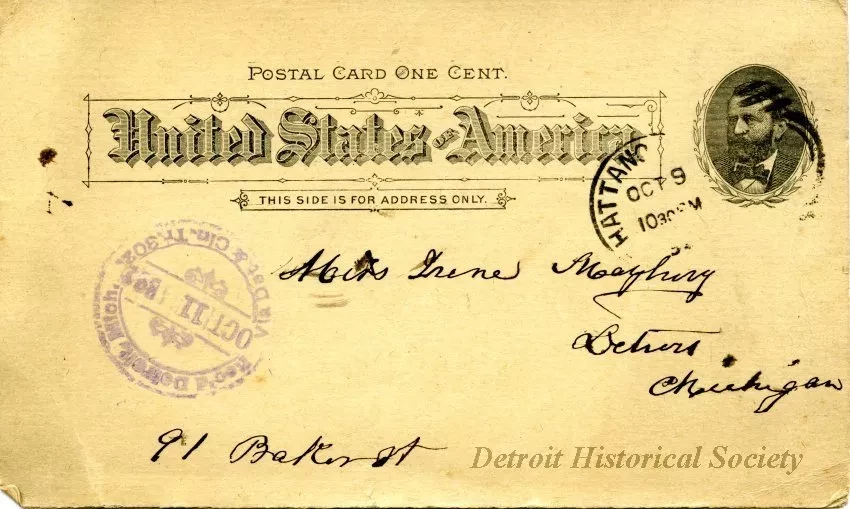 POSTAL CARD ONE CENT.
United States OF America
THIS SIDE IS FOR ADDRESS ONLY.
HATTANO
OCT 9
10 30 PM
Rec'd Detroit, Mich.
Via Det & Cin. Tr. 302.
OCT 11
Miss Irene Maybury
Detroit
Michigan
91 Baker St
Detroit Historical Society